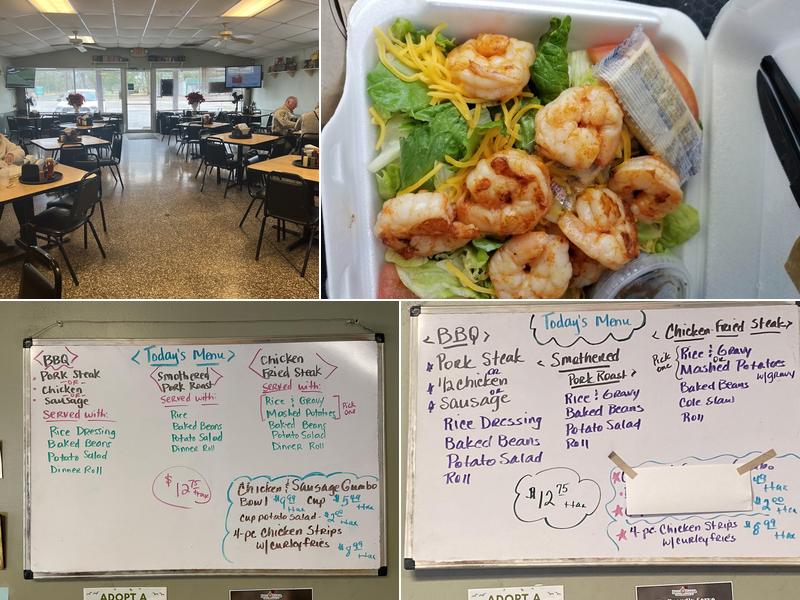 Today's Menu
BBQ
Pork Steak
-OR-
Chicken
-OR-
Sausage
Served with:
Rice Dressing
Baked Beans
Potato Salad
Dinner Roll
Smothered
Pork Roast
Served with:
Rice
Baked Beans
Potato Salad
Dinner Roll
Chicken
Fried Steak
Served with:
Rice & Gravy
Mashed Potatoes
Pick
one
Baked Beans
Potato Salad
Dinner Roll
$12.75
+tax
Chicken & Sausage Gumbo
Bowl $9.99 Cup $5.49
+tax +tax
Cup potato salad - $2.00
+tax
4-pc Chicken Strips
w/curleyfries $8.99
+tax
ADOPT A
Today's Menu
BBQ
Pork Steak
OR
1/2 Chicken
OR
Sausage
Rice Dressing
Baked Beans
Potato Salad
Roll
Smothered
Pork Roast
Rice & Gravy
Baked Beans
Potato Salad
Roll
Chicken Fried Steak
Pick
one
Rice & Gravy
OR
Mashed Potatoes
w/gravy
Baked Beans
Cole Slaw
Roll
$12.75
+tax
4-pc. Chicken Strips
w/curleyfries
$8.99
+tax
ADOPT A